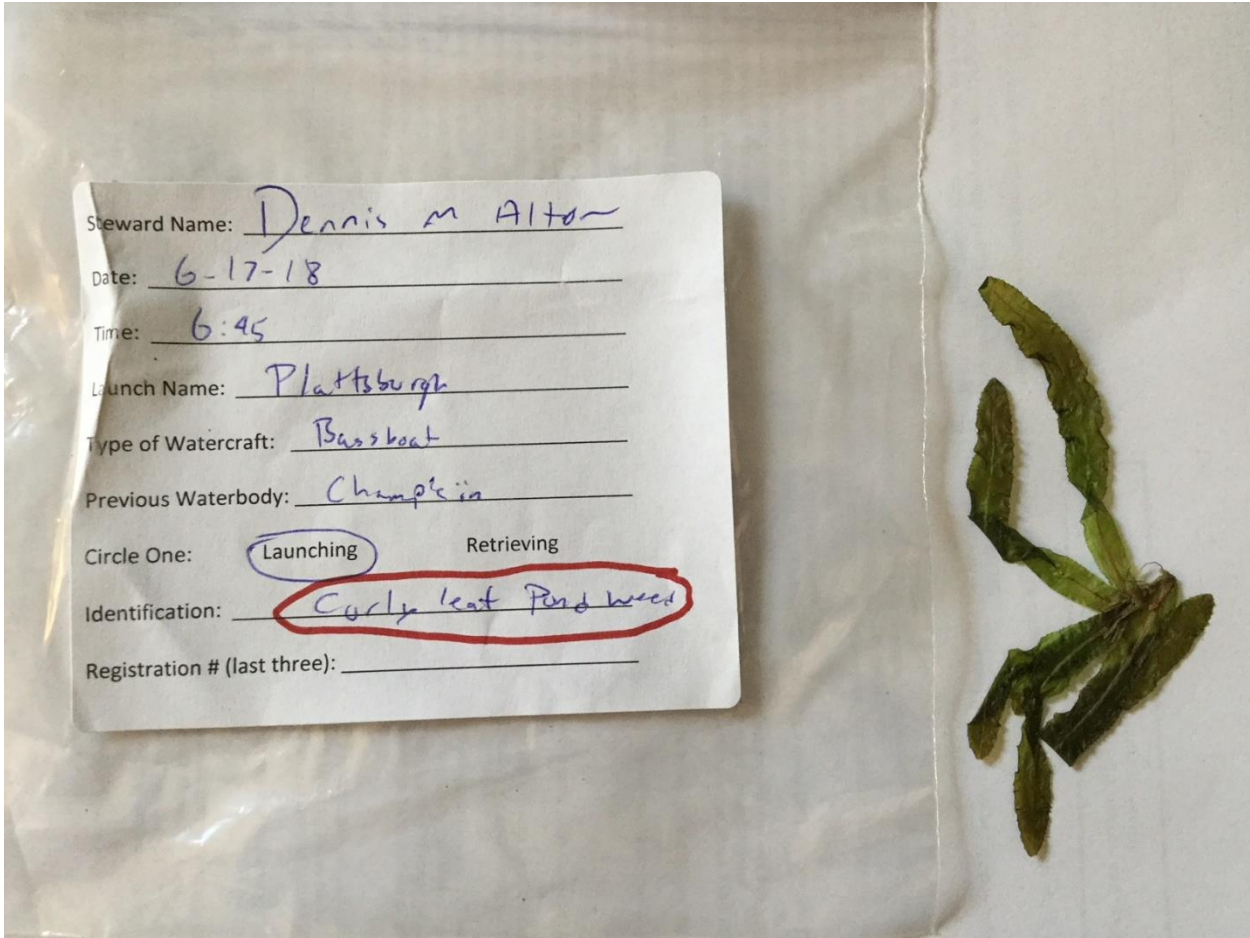 Steward Name: Dennis M Alton
Date: 6-17-18
Time: 6:45
Launch Name: Plattsburgh
Type of Watercraft: Bassboat
Previous Waterbody: Champlain
Circle One: Launching Retrieving
Identification: Curly leaf Pond weed
Registration # (last three):